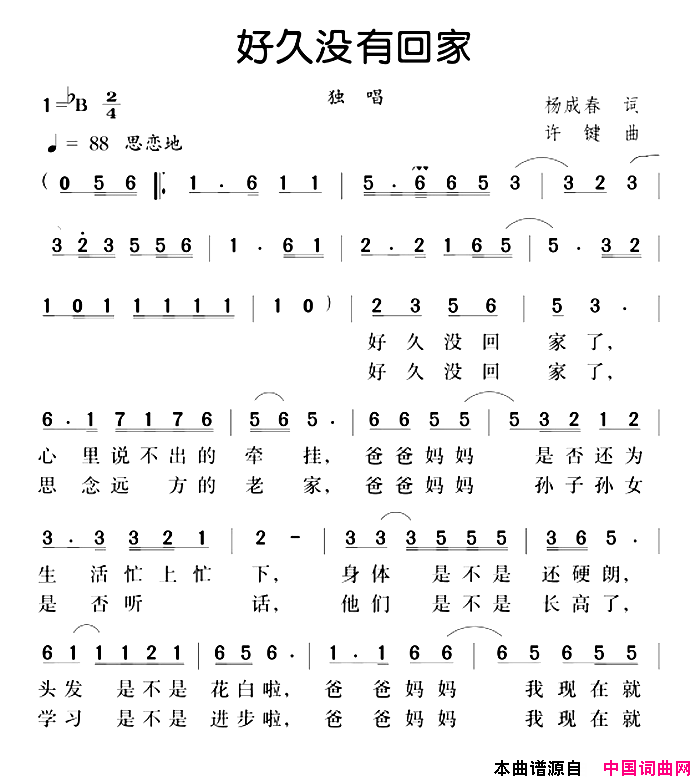 好久没有回家
1=♭B 2/4
独 唱
杨成春 词
许 键 曲
♩= 88 思恋地
( 0 5 6 ‖: 1 · 6 1 1 | 5 · 6 6 5 3 | 3 2 3
3 2 3 5 5 6 | 1 · 6 1 | 2 · 2 1 6 5 | 5 · 3 2
1 0 1 1 1 1 1 | 1 0 ) | 2 3 5 6 | 5 3 ·
好 久 没 回 家 了,
好 久 没 回 家 了,
6 · 1 7 1 7 6 | 5 6 5 · | 6 6 5 5 | 5 3 2 1 2
心 里 说 不 出 的 牵 挂, 爸 爸 妈 妈 是 否 还 为
思 念 远 方 的 老 家, 爸 爸 妈 妈 孙 子 孙 女
3 · 3 3 2 1 | 2 - | 3 3 3 5 5 5 | 3 6 5 ·
生 活 忙 上 忙 下, 身 体 是 不 是 还 硬 朗,
是 否 听 话, 他 们 是 不 是 长 高 了,
6 1 1 1 2 1 | 6 5 6 · | 1 · 1 6 6 | 6 5 6 5 5
头 发 是 不 是 花 白 啦, 爸 爸 妈 妈 我 现 在 就
学 习 是 不 是 进 步 啦, 爸 爸 妈 妈 我 现 在 就
本曲谱源自 中国词曲网